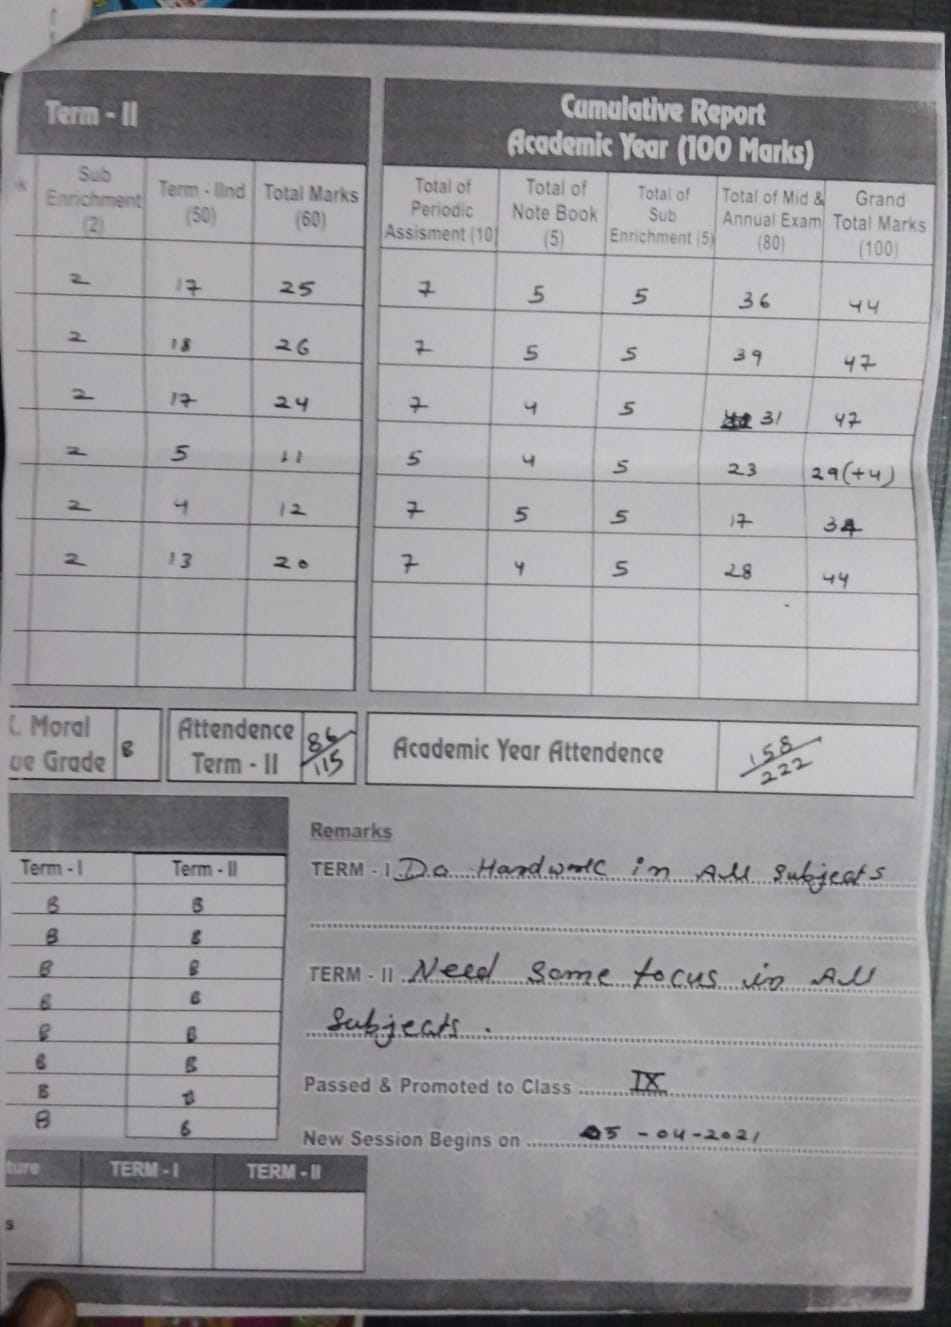 Term - II
Cumulative Report
Academic Year (100 Marks)
Sub Enrichment (2) Term - IInd (50) Total Marks (60) Total of Periodic Assisment (10) Total of Note Book (5) Total of Sub Enrichment (5) Total of Mid & Annual Exam (80) Grand Total Marks (100)
2 17 25 7 5 5 36 44
2 18 26 7 5 5 39 47
2 17 24 7 4 5 31 47
2 5 11 5 4 5 23 29(+4)
2 4 12 7 5 5 17 34
2 13 20 7 4 5 28 44
Moral
Grade B
Attendence
Term - II 86/115
Academic Year Attendence 158/222
Term - I Term - II
B B
B B
B B
B B
B B
B B
B B
B B
Remarks
TERM - I Do Hardwork in All Subjects
TERM - II Need Some focus in All
Subjects.
Passed & Promoted to Class IX
New Session Begins on 05-04-2021
TERM - I TERM - II